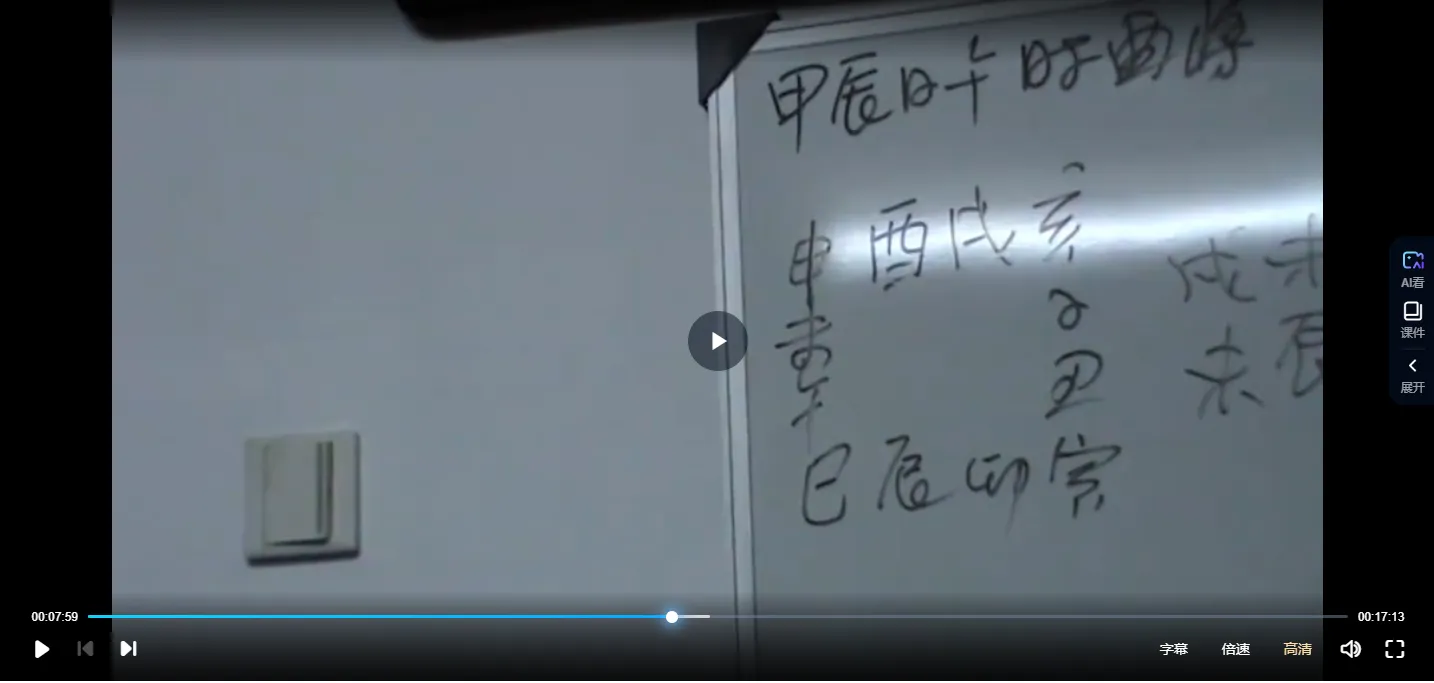 甲辰日午时酉将
申酉戌亥
戌未
未
子
未辰
午
丑
巳辰卯寅
AI看
课件
展开
00:07:59
00:17:13
字幕
倍速
高清